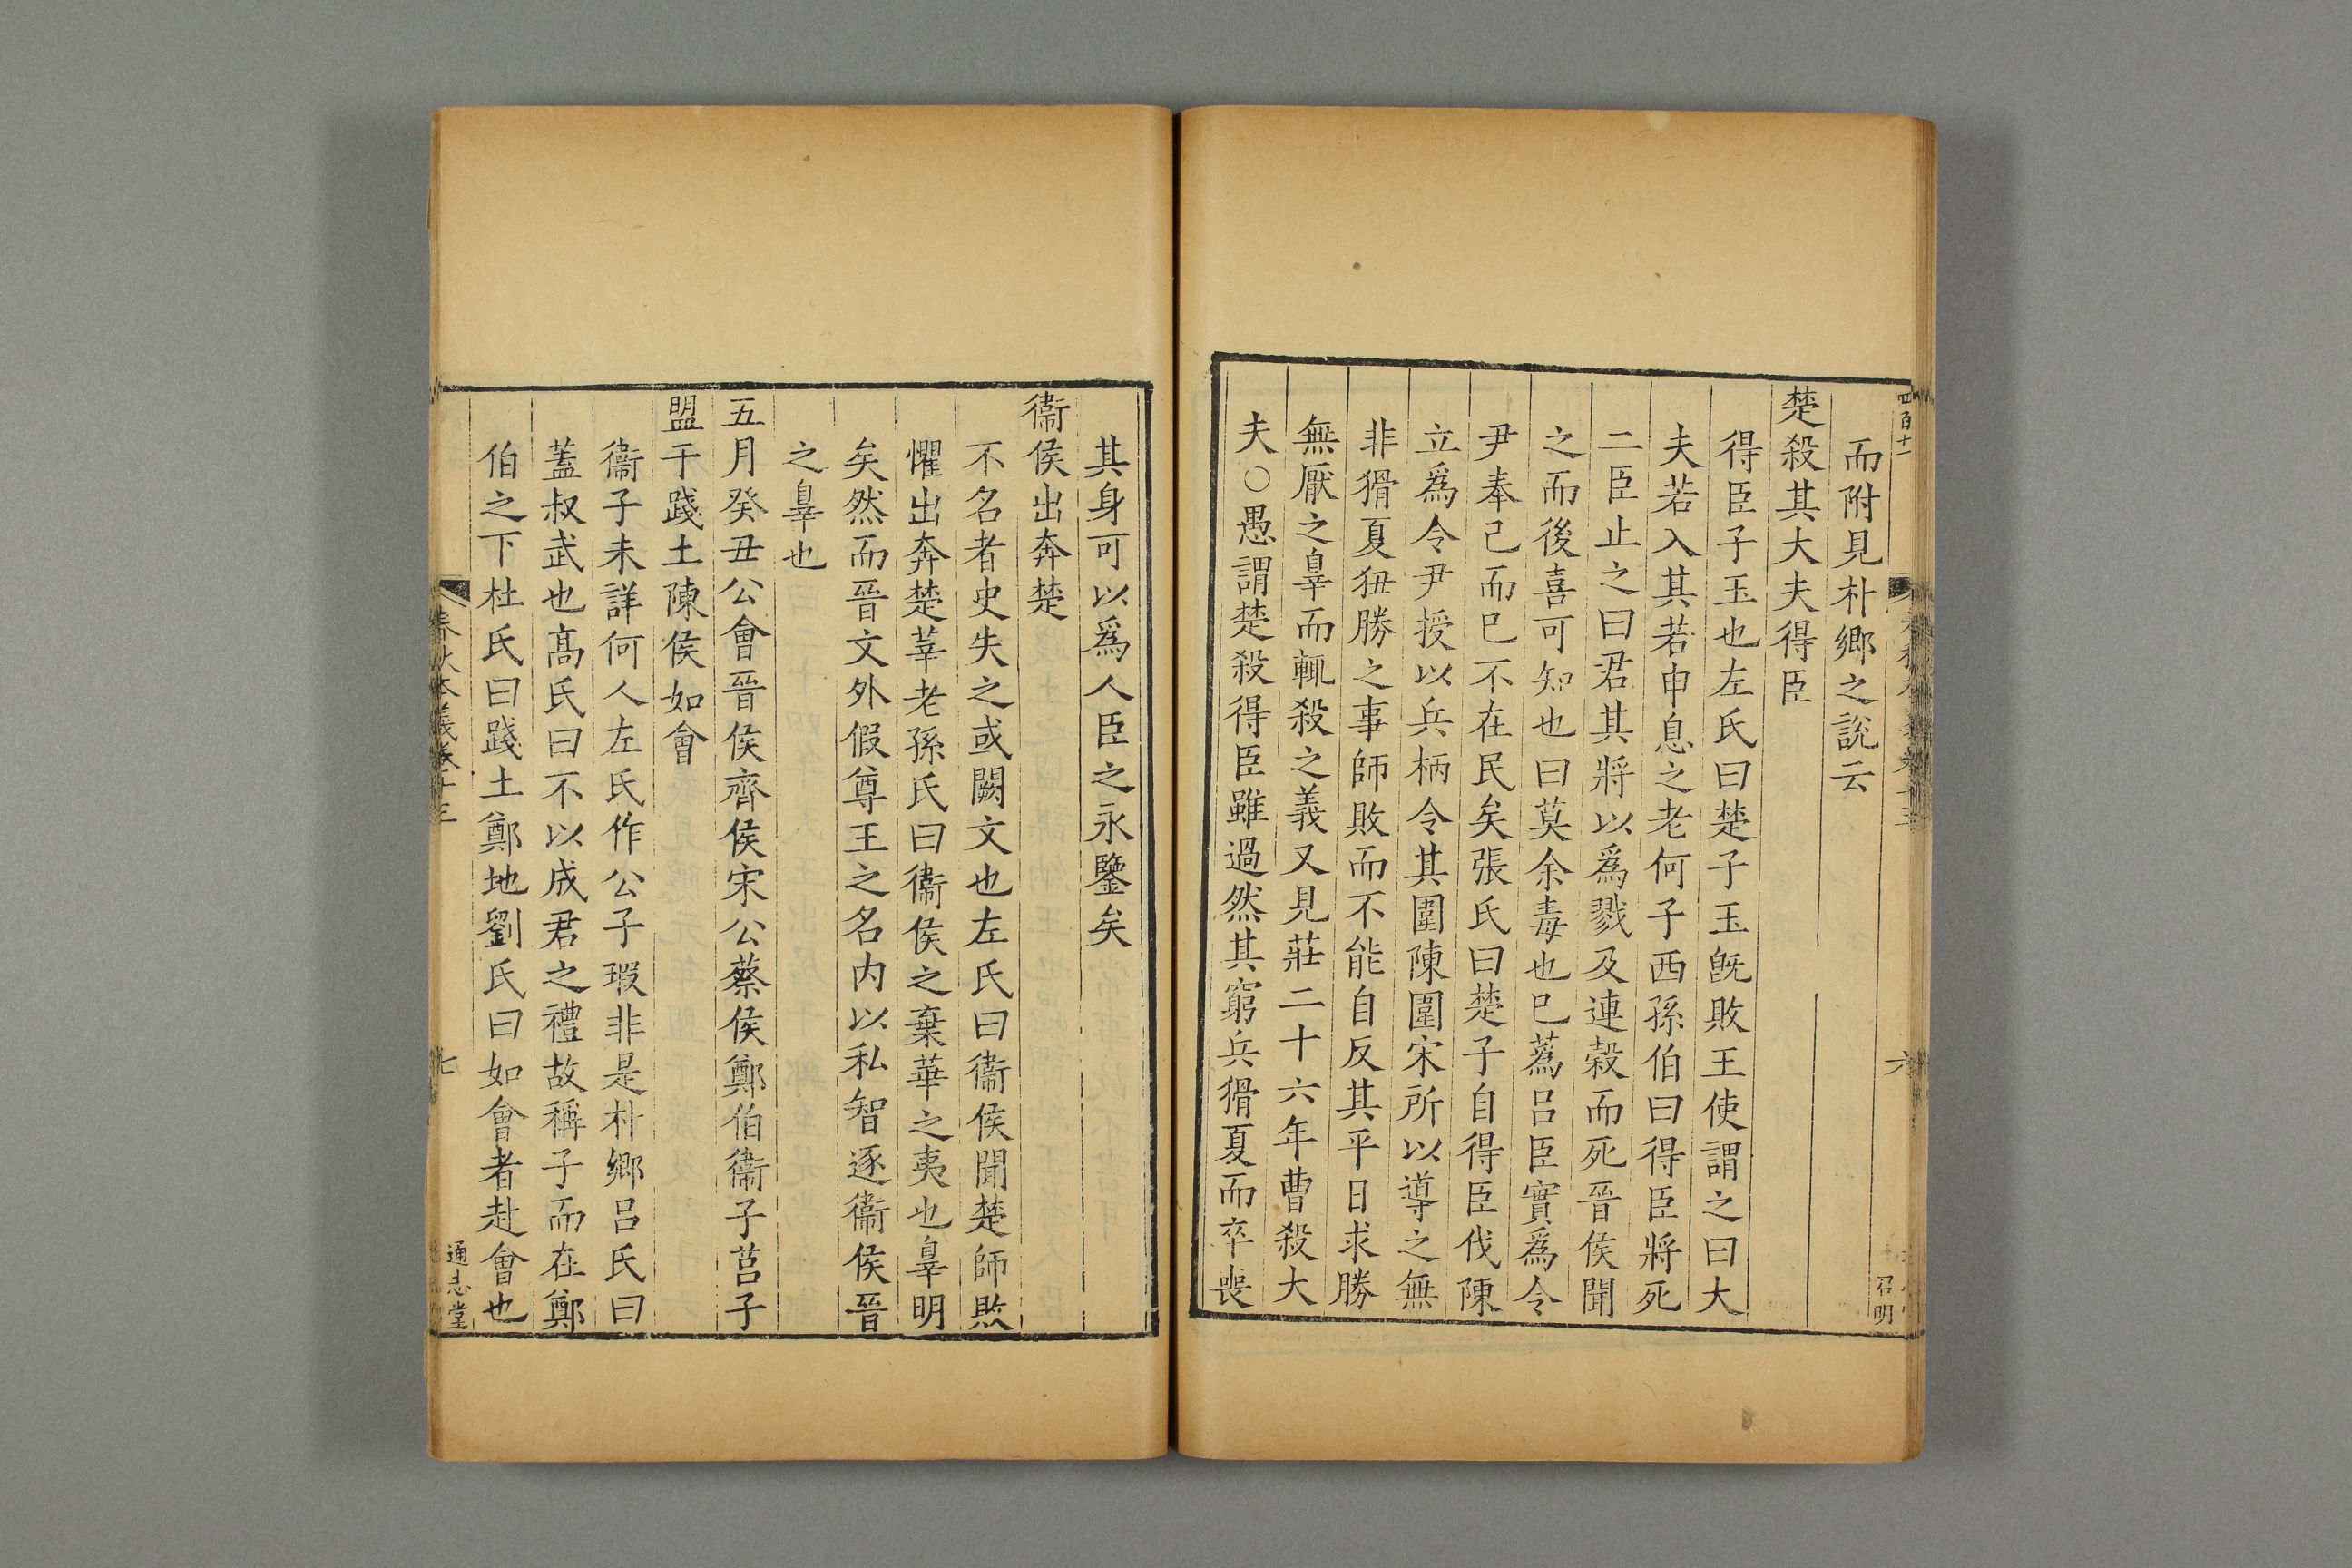 四百十一
六
召明
而附見朴鄉之說云
楚殺其大夫得臣
得臣子玉也左氏曰楚子玉旣敗王使謂之曰大
夫若入其若申息之老何子西孫伯曰得臣將死
二臣止之曰君其將以爲戮及連穀而死晉侯聞
之而後喜可知也曰莫余毒也巳蒍呂臣實爲令
尹奉己而巳不在民矣張氏曰楚子自得臣伐陳
立爲令尹授以兵柄令其圍陳圍宋所以導之無
非猾夏狃勝之事師敗而不能自反其平日求勝
無厭之辠而輒殺之義又見莊二十六年曹殺大
夫○愚謂楚殺得臣雖過然其窮兵猾夏而卒喪
其身可以爲人臣之永鑒矣
衞侯出奔楚
不名者史失之或闕文也左氏曰衞侯聞楚師敗
懼出奔楚莘老孫氏曰衞侯之棄華之夷也辠明
矣然而晉文外假尊王之名内以私智逐衞侯晉
之辠也
五月癸丑公會晉侯齊侯宋公蔡侯鄭伯衞子莒子
盟于踐土陳侯如會
衞子未詳何人左氏作公子瑕非是朴鄉呂氏曰
蓋叔武也髙氏曰不以成君之禮故稱子而在鄭
伯之下杜氏曰踐土鄭地劉氏曰如會者赴會也
春秋本義卷十三
七
通志堂